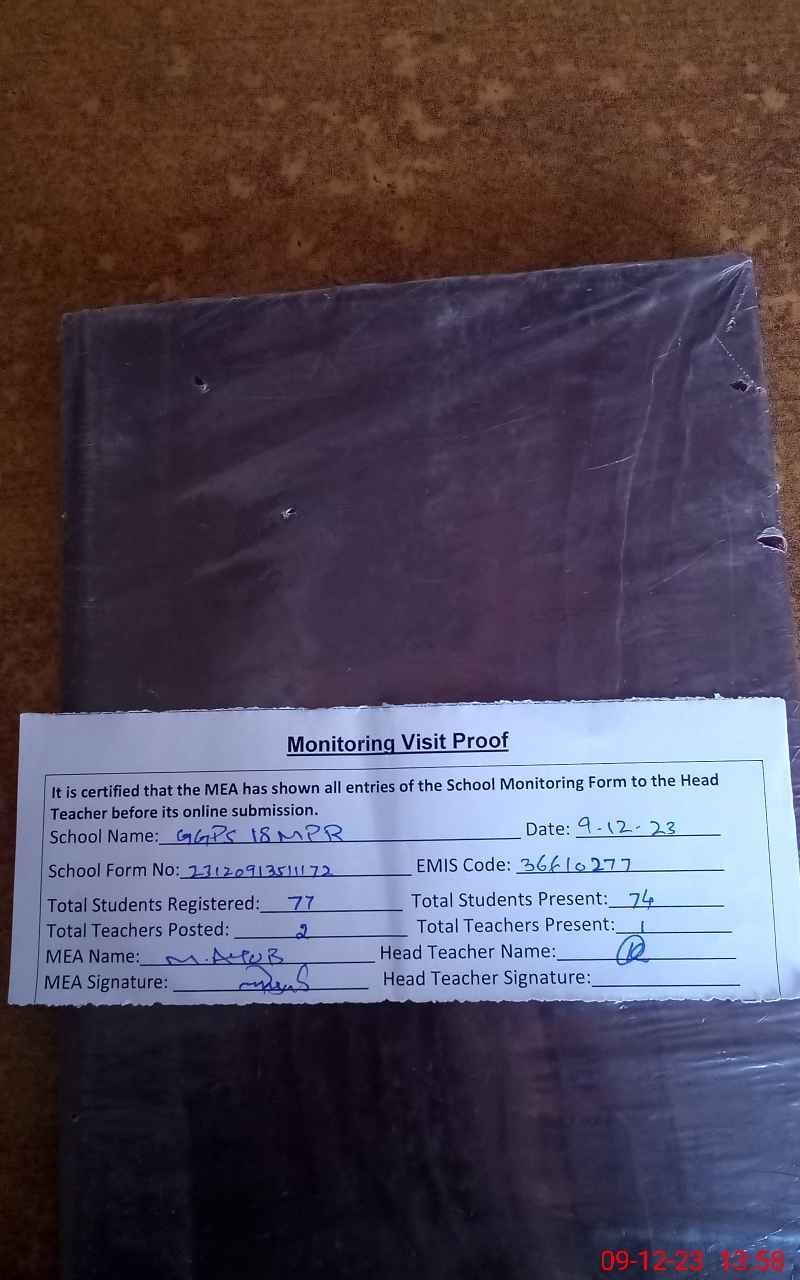 Monitoring Visit Proof
It is certified that the MEA has shown all entries of the School Monitoring Form to the Head
Teacher before its online submission.
School Name: GGPS 18 MPR Date: 9-12-23
School Form No: 23120913511172 EMIS Code: 36610277
Total Students Registered: 77 Total Students Present: 74
Total Teachers Posted: 2 Total Teachers Present: 1
MEA Name: M.AYUB Head Teacher Name:
MEA Signature: Head Teacher Signature:
09-12-23 13:58